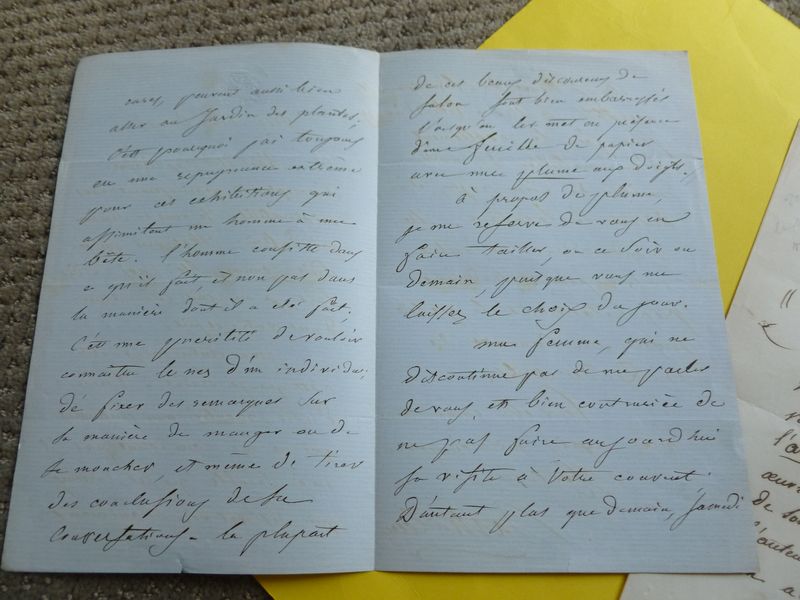 cares, peuvent aussi bien
aller au Jardin des plantes.
C'est pourquoi j'ai toujours
eu une repugnance extrême
pour ces exhibitions qui
assimilent un homme à une
bête. l'homme consiste dans
ce qu'il fait, et non pas dans
la manière dont il a été fait.
C'est une puérilité de vouloir
connaître le nez d'un individu,
de fixer des remarques sur
sa manière de manger ou de
se moucher, et même de tirer
des conclusions de sa
conversation. la plupart
de ces beaux discoureurs de
salon sont bien embarrassés
lorsqu'on les met en présence
d'une feuille de papier
avec une plume aux doigts.
à propos de plume,
je me reserve de vous en
faire tailler, ou ce soir ou
demain, puisque vous me
laissez le choix du jour.
ma femme, qui ne
discontinue pas de me parler
de vous, est bien contrariée de
ne pas faire aujourd'hui
sa visite à votre couvent.
D'autant plus que demain, samedi
l'a
œuv
de
l'auteu